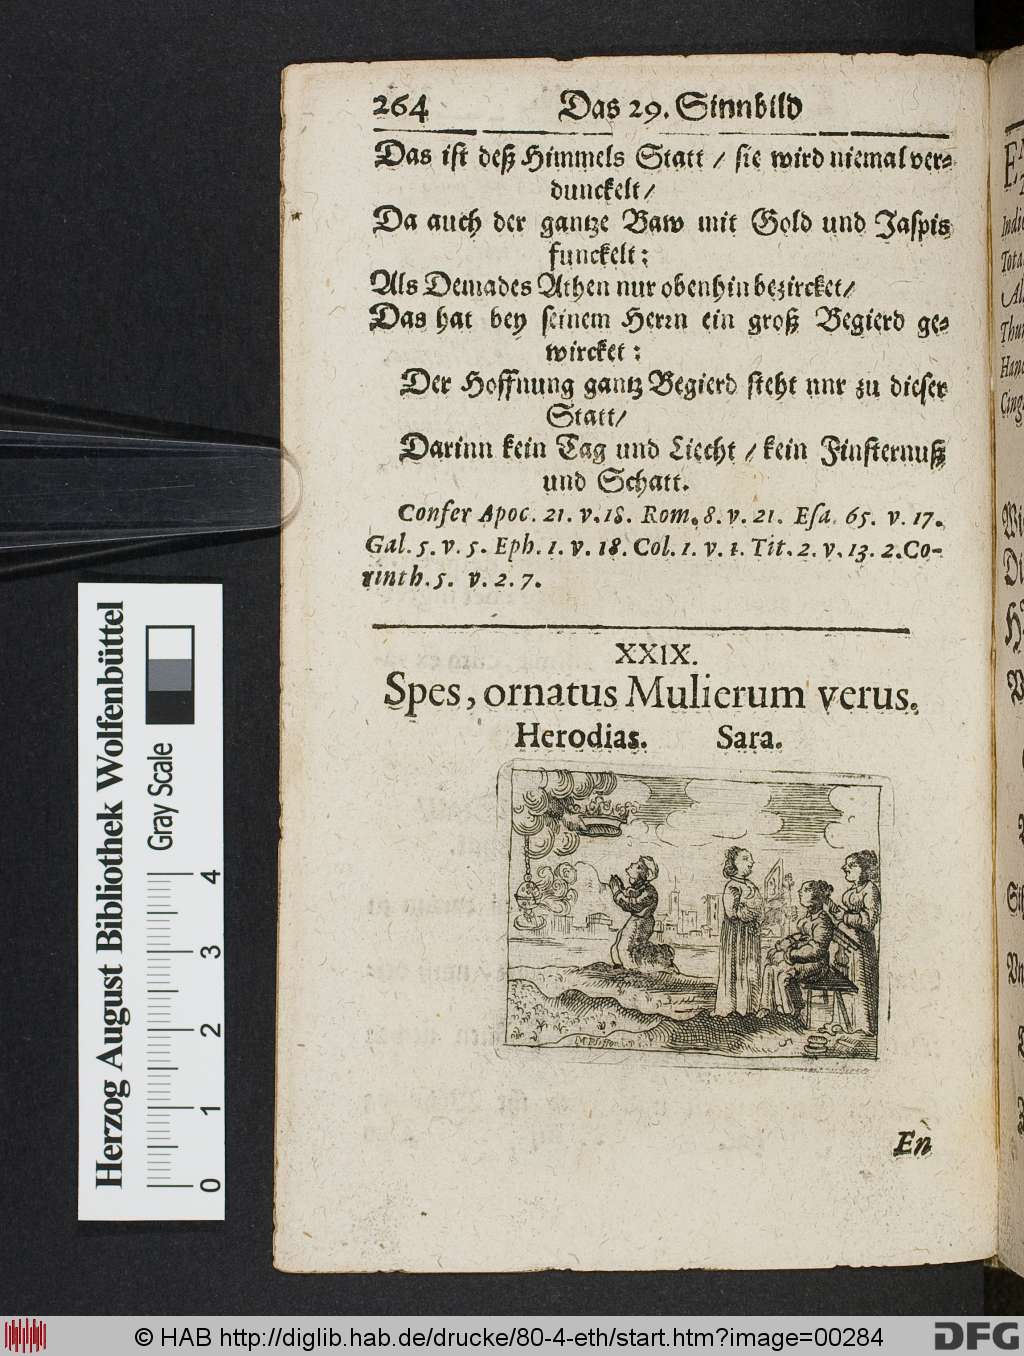 264 Das 29. Sinnbild
Das ist deß Himmels Statt / sie wird niemal ver-
dunckelt /
Da auch der gantze Baw mit Gold und Jaspis
funckelt:
Als Demades Athen nur obenhin bezircket /
Das hat bey seinem Herrn ein groß Begierd ge-
wircket:
Der Hoffnung gantz Begierd steht nur zu dieser
Statt /
Darinn kein Tag und Liecht / kein Finsternuß
und Schatt.
Confer Apoc. 21. v. 18. Rom. 8. v. 21. Esa. 65. v. 17.
Gal. 5. v. 5. Eph. 1. v. 18. Col. 1. v. 1. Tit. 2. v. 13. 2. Co-
rinth. 5. v. 2. 7.
XXIX.
Spes, ornatus Mulierum verus.
Herodias. Sara.
En
Herzog August Bibliothek Wolfenbüttel
Gray Scale
0 1 2 3 4
© HAB http://diglib.hab.de/drucke/80-4-eth/start.htm?image=00284
DFG